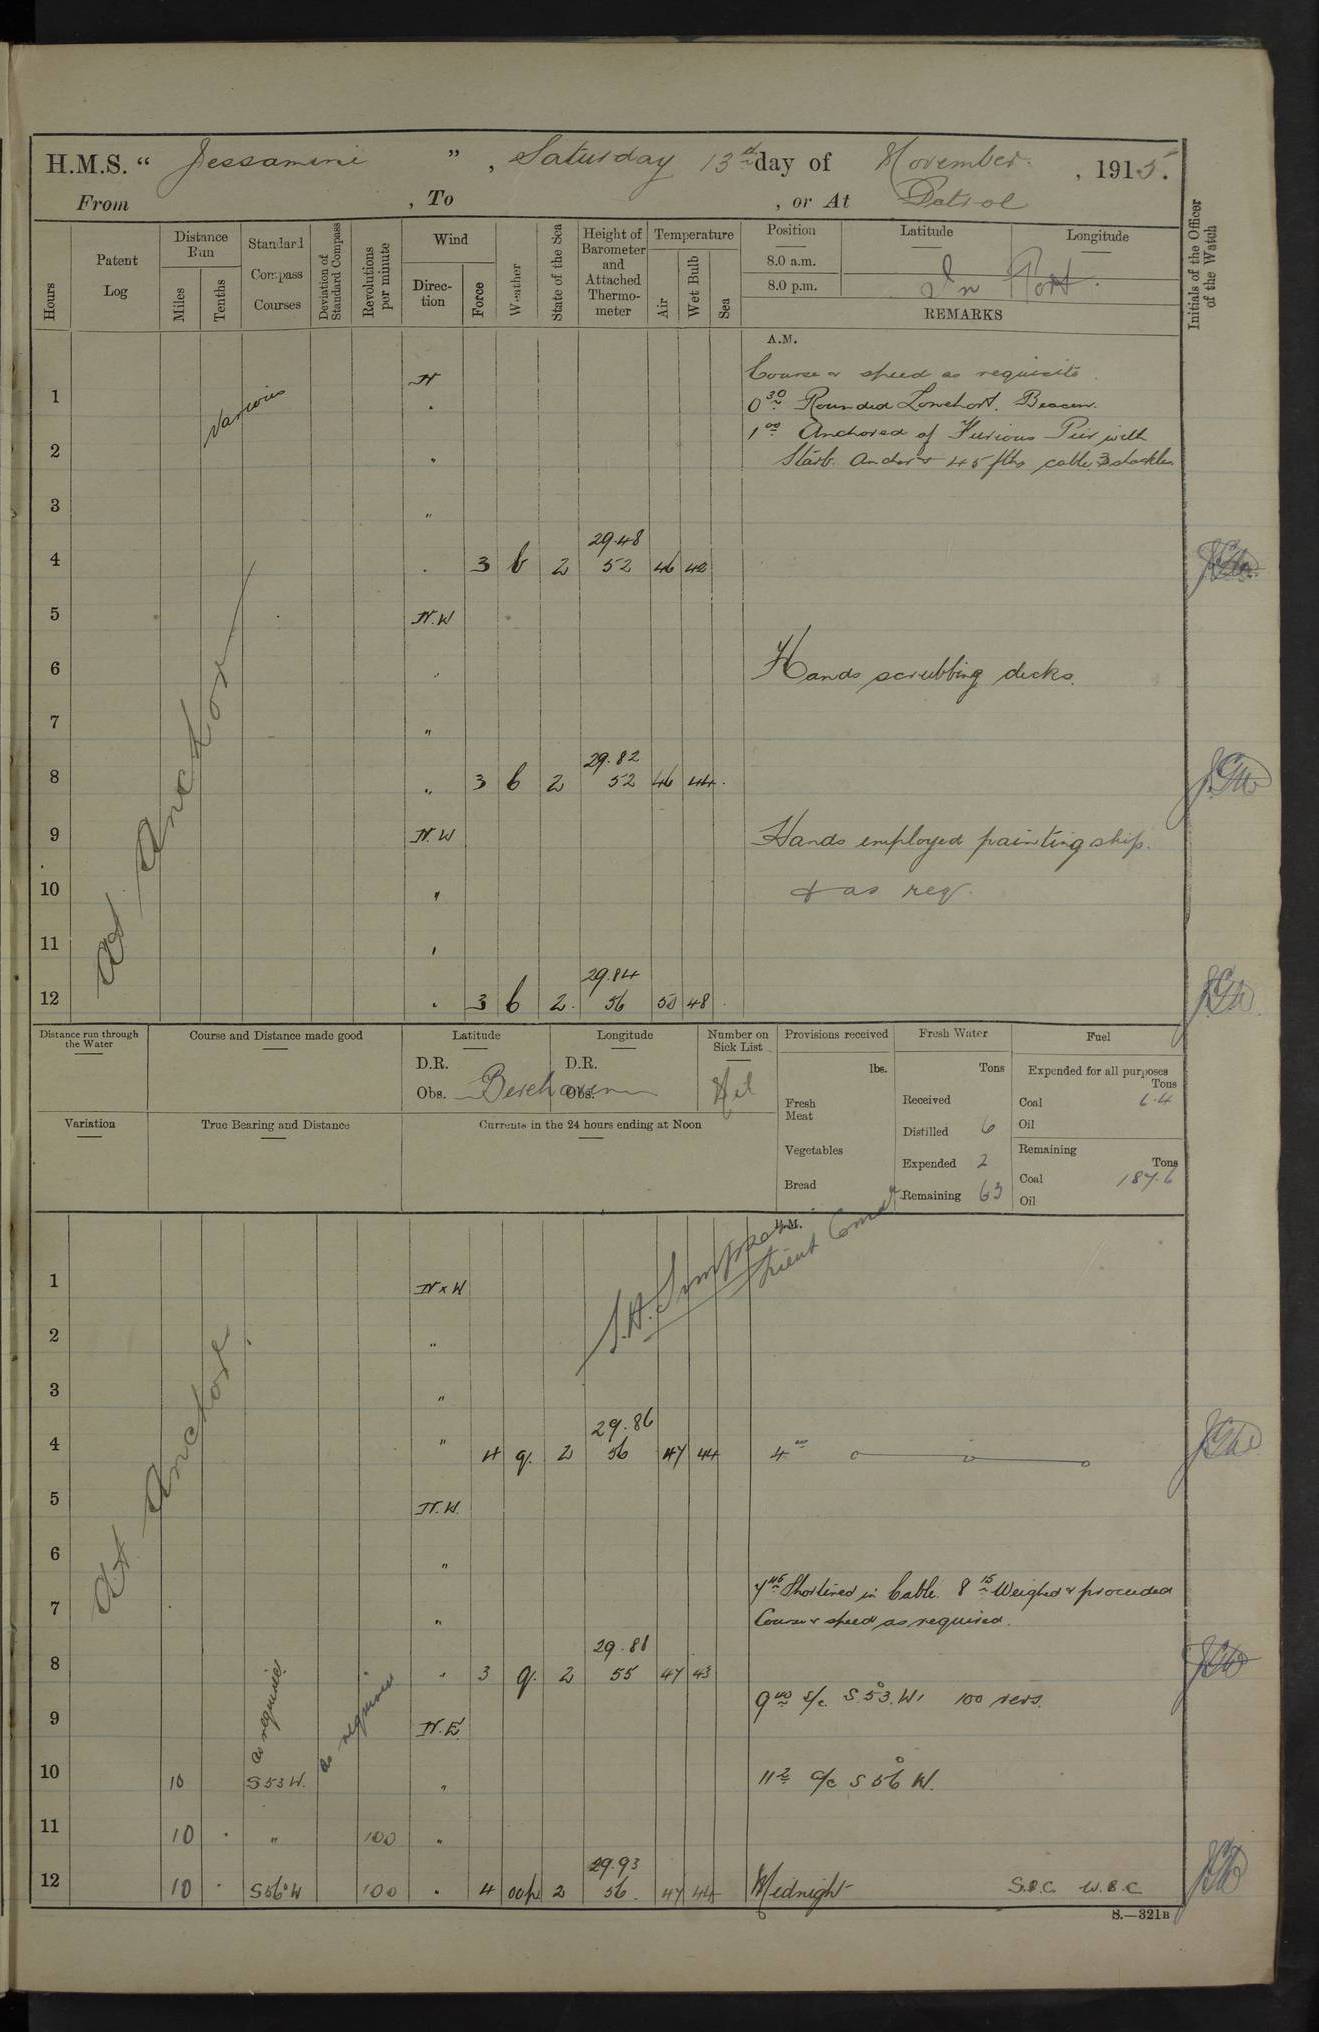 H.M.S. " Jessamine " , Saturday 13th day of November , 1915.
From , To , or At Patrol
Hours
Patent Log
Distance Run
Miles
Tenths
Standard Compass Courses
Deviation of Standard Compass
Revolutions per minute
Wind
Direction
Force
Weather
State of the Sea
Height of Barometer and Attached Thermometer
Temperature
Air
Wet Bulb
Sea
Position
Latitude
Longitude
8.0 a.m.
8.0 p.m.
In Port.
REMARKS
Initials of the Officer of the Watch
A.M.
Course & speed as requisite.
1 Various N 0 30 Rounded Beacon.
1 00 Anchored of Furious Pier with
2 " Starb. Anchor 45 fths cable 3 shackles
3 "
29.48
4 " 3 b 2 52 46 42
5 N.W
6 " Hands scrubbing decks.
7 "
29.82
8 " 3 b 2 52 46 44
At Anchor
9 N.W Hands employed painting ship.
10 " & as req.
11 "
29.84
12 " 3 b 2 56 50 48
Distance run through the Water
Course and Distance made good
Latitude
Longitude
Number on Sick List
Provisions received
Fresh Water
Fuel
D.R. D.R.
Obs. Berehaven Obs.
Nil
lbs.
Fresh Meat
Vegetables
Bread
Tons
Received
Distilled 6
Expended 2
Remaining 63
Expended for all purposes
Tons
Coal 6.4
Oil
Remaining
Tons
Coal 187.6
Oil
Variation
True Bearing and Distance
Currents in the 24 hours ending at Noon
P.M.
S.A. Simpson
Lieut Comdr
1 N x W
2 "
3 "
29.86
4 " 4 q. 2 56 47 44 4 00
5 N.W.
6 "
At Anchor.
7 45 Shortened in Cable. 8 15 Weighed & proceeded
7 " Course & speed as required.
29.81
8 " 3 q. 2 55 47 43
9 00 S/c S.53.W. 100 revs.
9 as required as required N.E.
10 10 S53W. " 11 2 a/c S 56° W.
11 10 . " 100 "
29.93
12 10 . S56°W 100 " 4 2 56 47 44 Midnight S.B.C. W.B.C
S.—321B